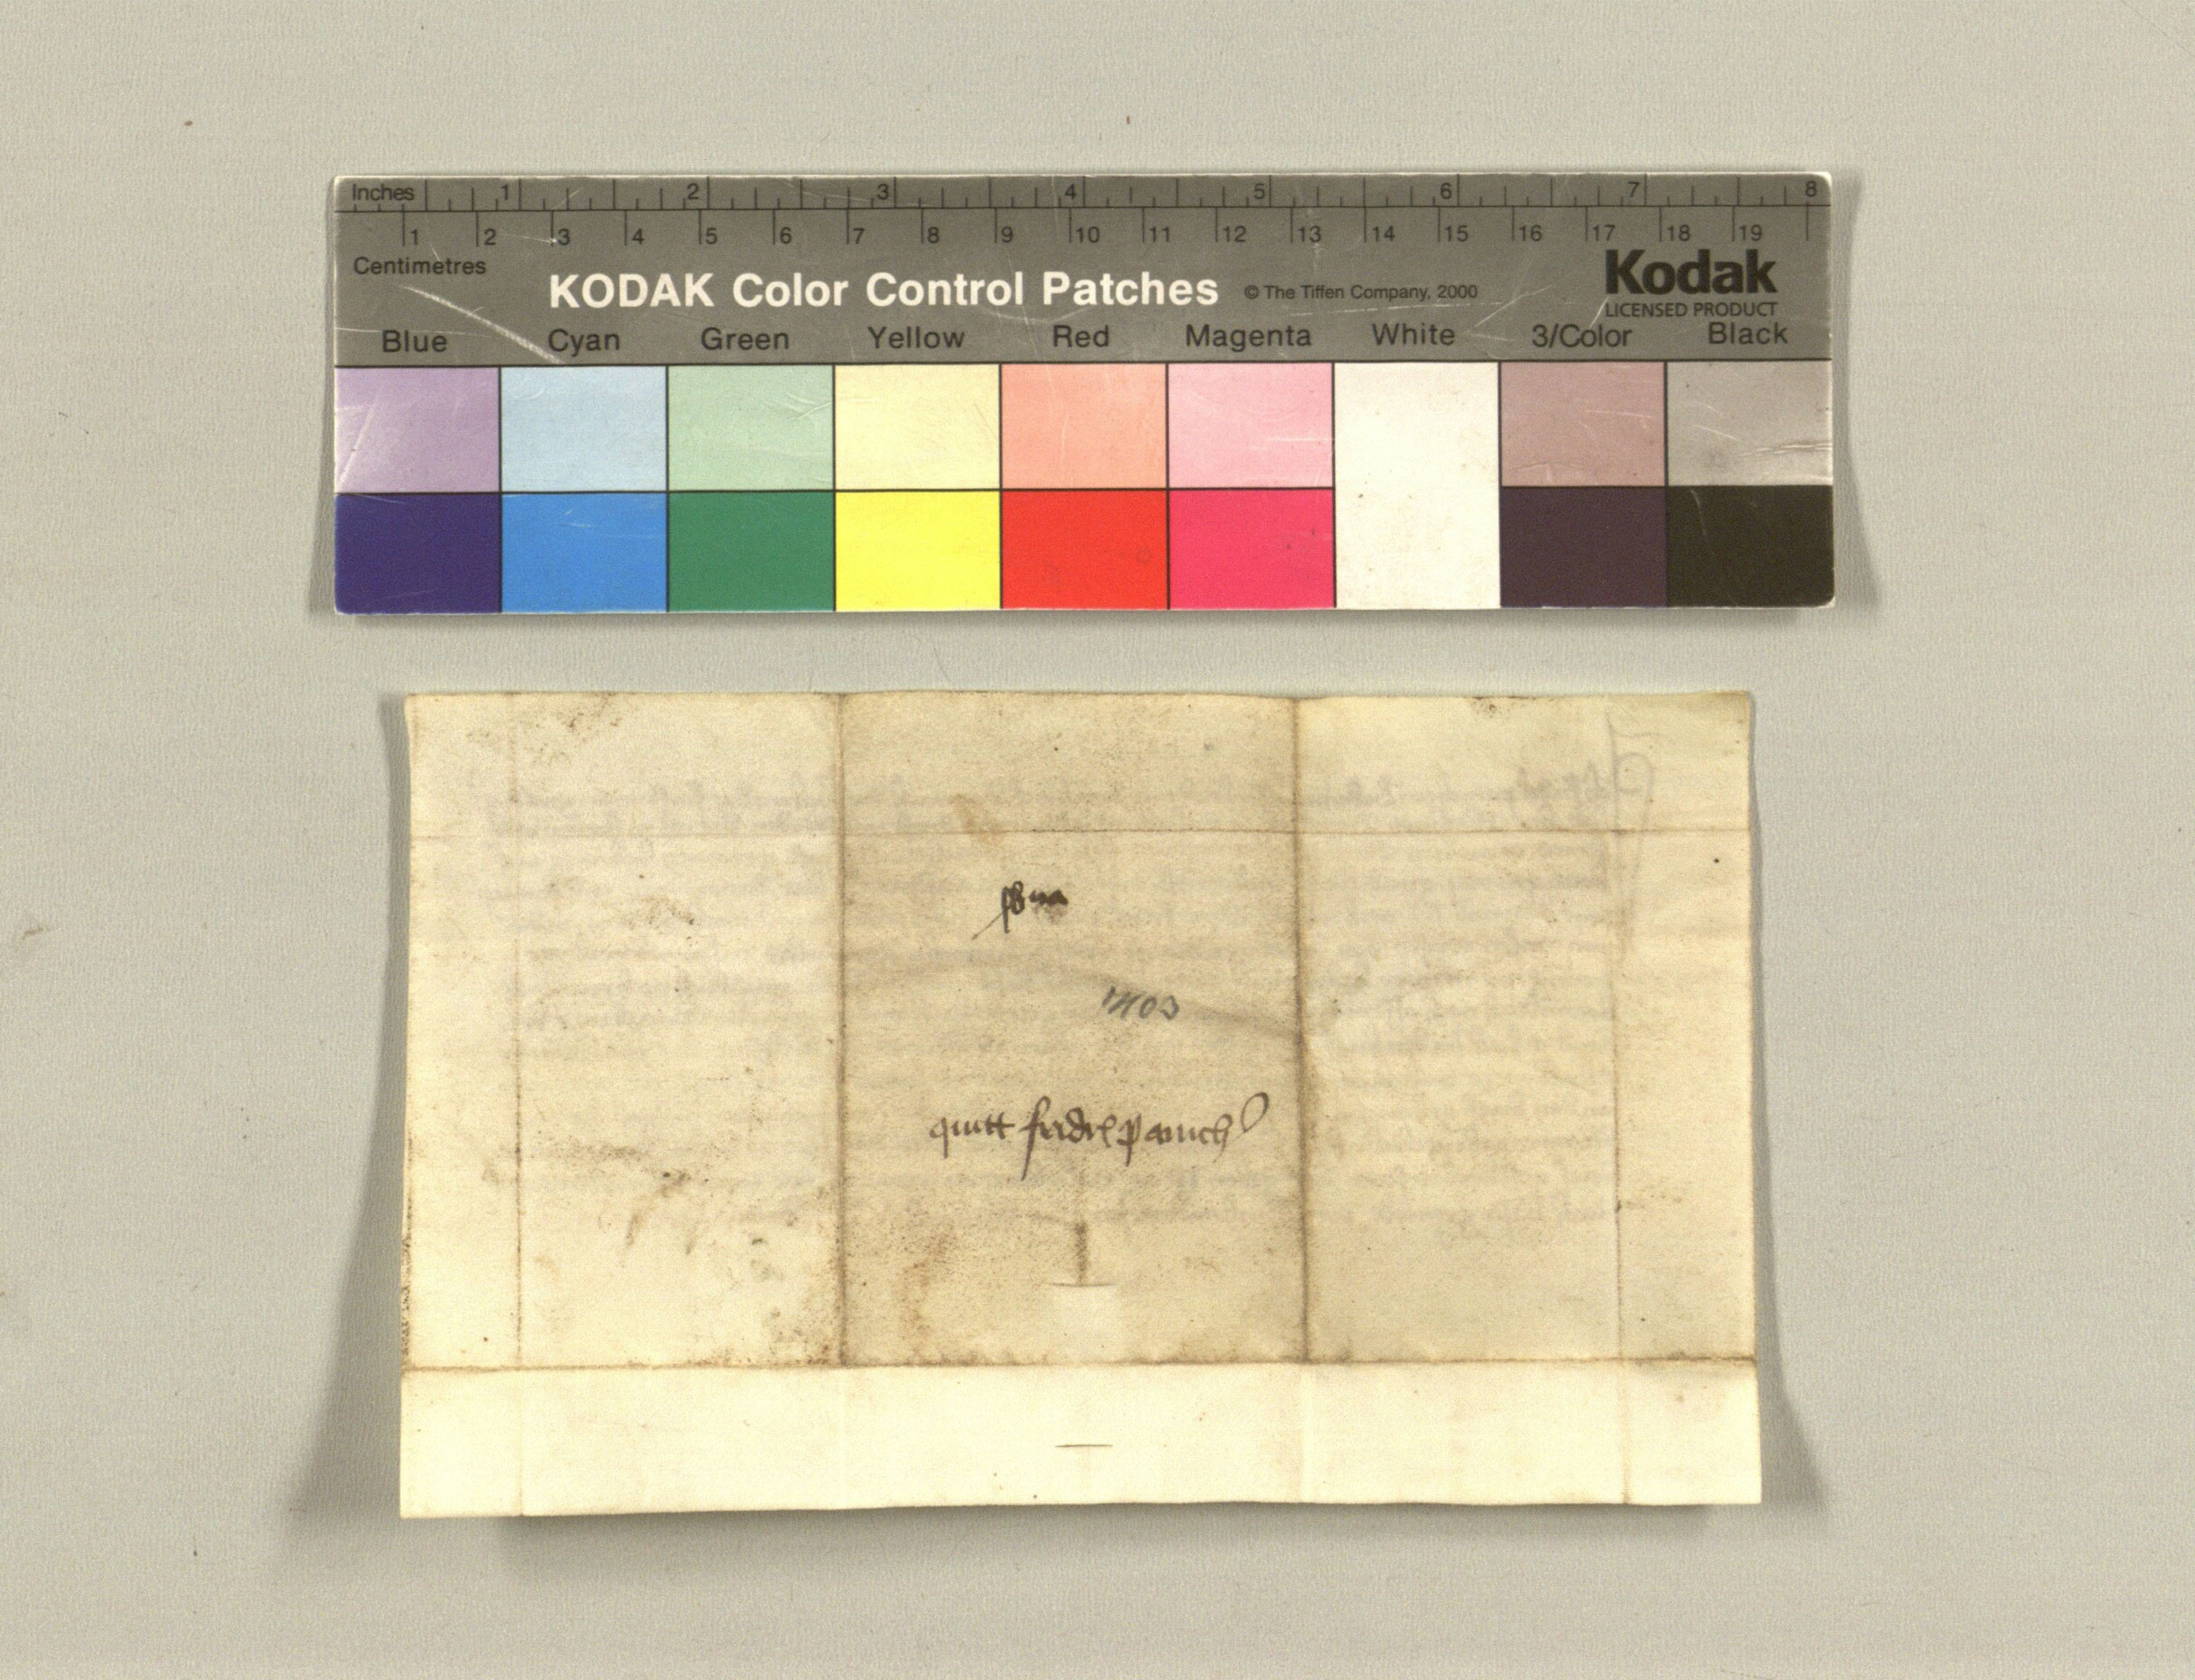 Inches 1 2 3 4 5 6 7 8
1 2 3 4 5 6 7 8 9 10 11 12 13 14 15 16 17 18 19
Centimetres
KODAK Color Control Patches © The Tiffen Company, 2000 Kodak
LICENSED PRODUCT
Blue Cyan Green Yellow Red Magenta White 3/Color Black
1403
quitt